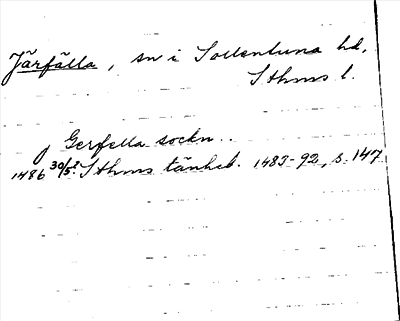 Järfälla, sn i Sollentuna hd,
Sthms l.
j Gerfella sockn..
1486 30/5. Sthms tänkeb. 1483-92, s. 147